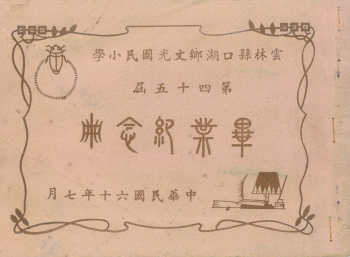 雲林縣口湖鄉文光國民小學
第四十五屆
畢業紀念冊
中華民國六十年七月